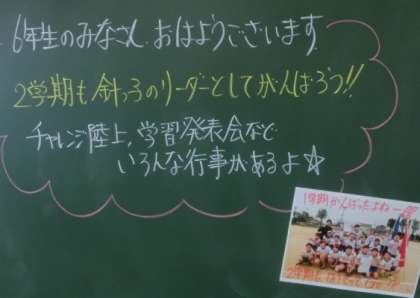 6年生のみなさん おはようございます
2学期も針っ子のリーダーとしてがんばろう!!
チャレンジ陸上、学習発表会など
いろんな行事があるよ☆
1学期がんばったよね
2学期も